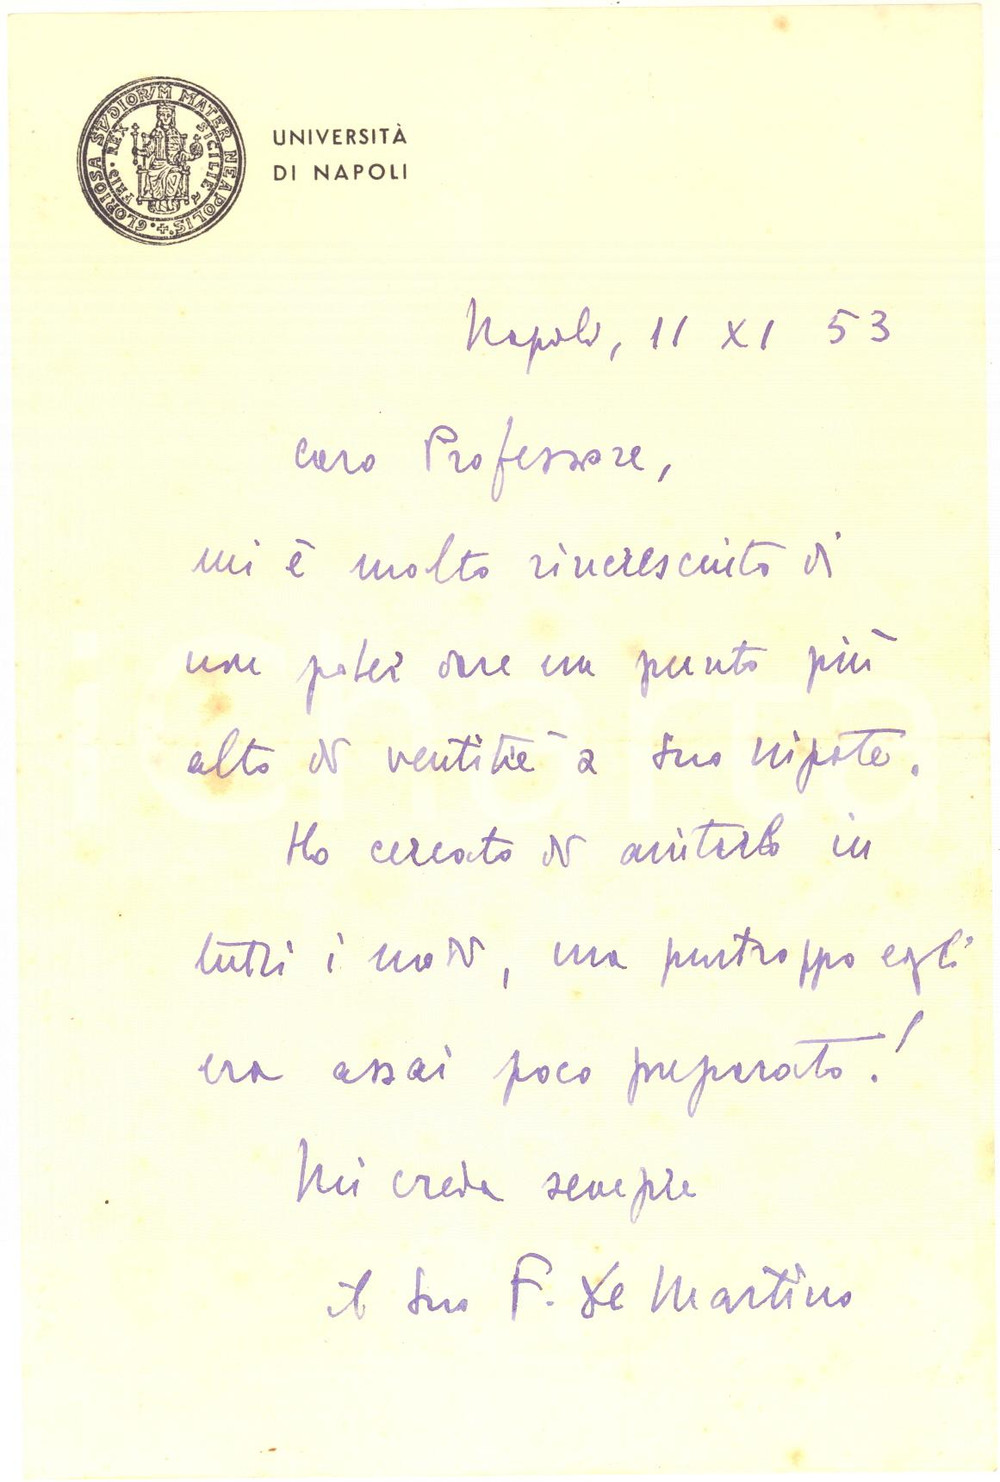 GLORIOSA STVDIORVM MATER NEAPOLIS
FRIS · REX SICILIE
UNIVERSITÀ
DI NAPOLI
Napoli, 11 XI 53
Caro Professore,
mi è molto rincresciuto di
non poter dare un punto più
alto di ventitrè a Suo nipote.
Ho cercato di aiutarlo in
tutti i modi, ma purtroppo egli
era assai poco preparato!
Mi creda sempre
il Suo F. De Martino